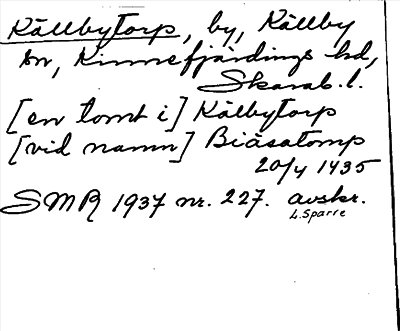 Källbytorp, by, Källby
sn, Kinnefjärdings hd,
Skarab. l.
[en tomt i] Kälbytorp
[vid namn] Biäsatomp
20/4 1435
SMR 1937 nr. 227. avskr.
L. Sparre